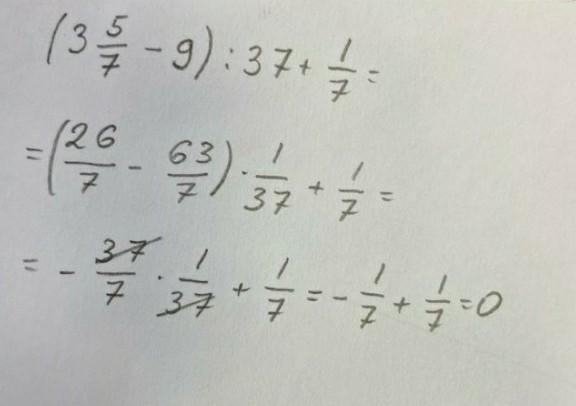 (3 5/7 - 9) : 37 + 1/7 =
= (26/7 - 63/7) · 1/37 + 1/7 =
= - 37/7 · 1/37 + 1/7 = - 1/7 + 1/7 = 0